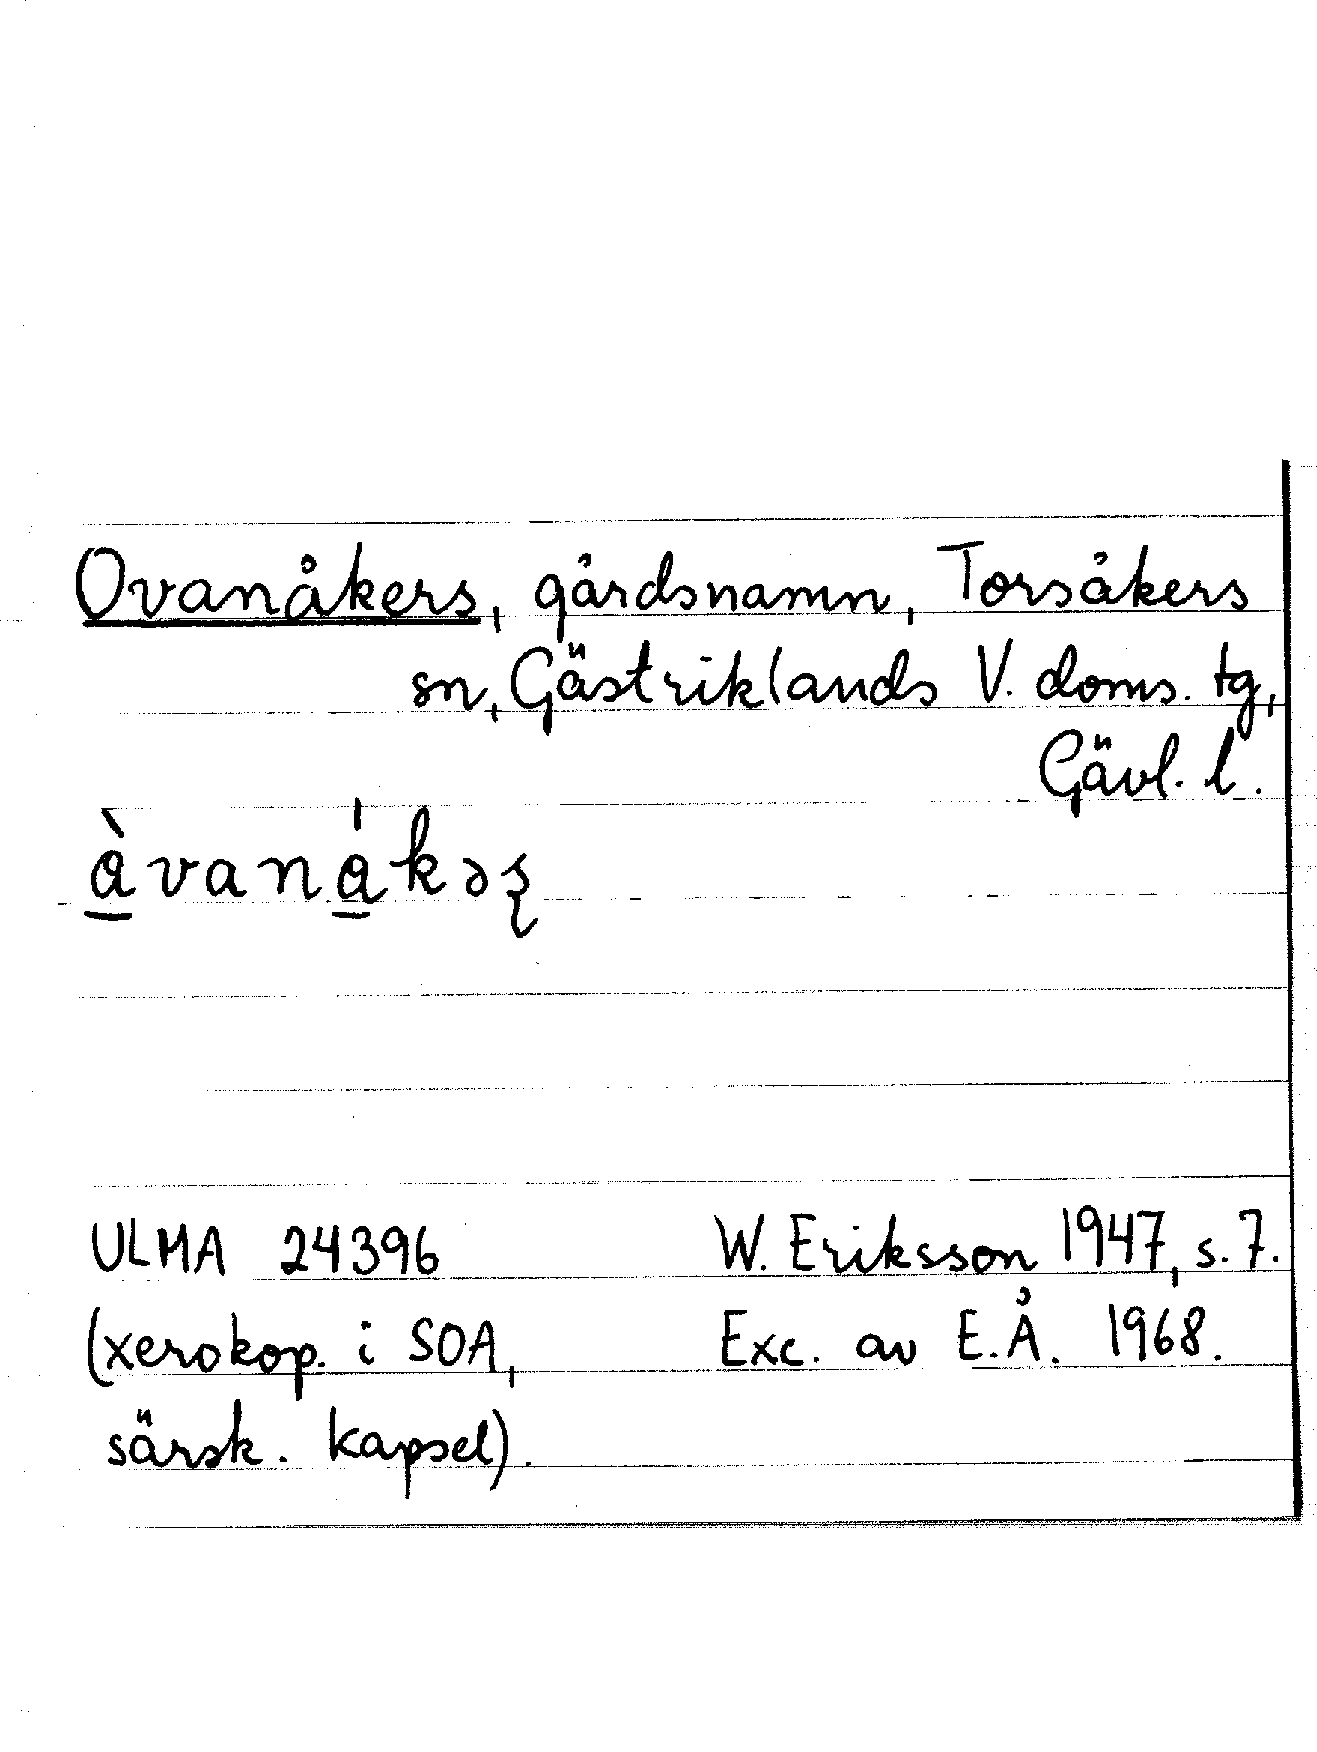 Ovanåkers, gårdsnamn, Torsåkers
sn, Gästriklands V. doms. tg,
Gävl. l.
å̱̀vanǻ̱kəʂ
ULMA 24396
(xerokop. i SOA,
särsk. kapsel).
W. Eriksson 1947, s. 7.
Exc. av E.Å. 1968.